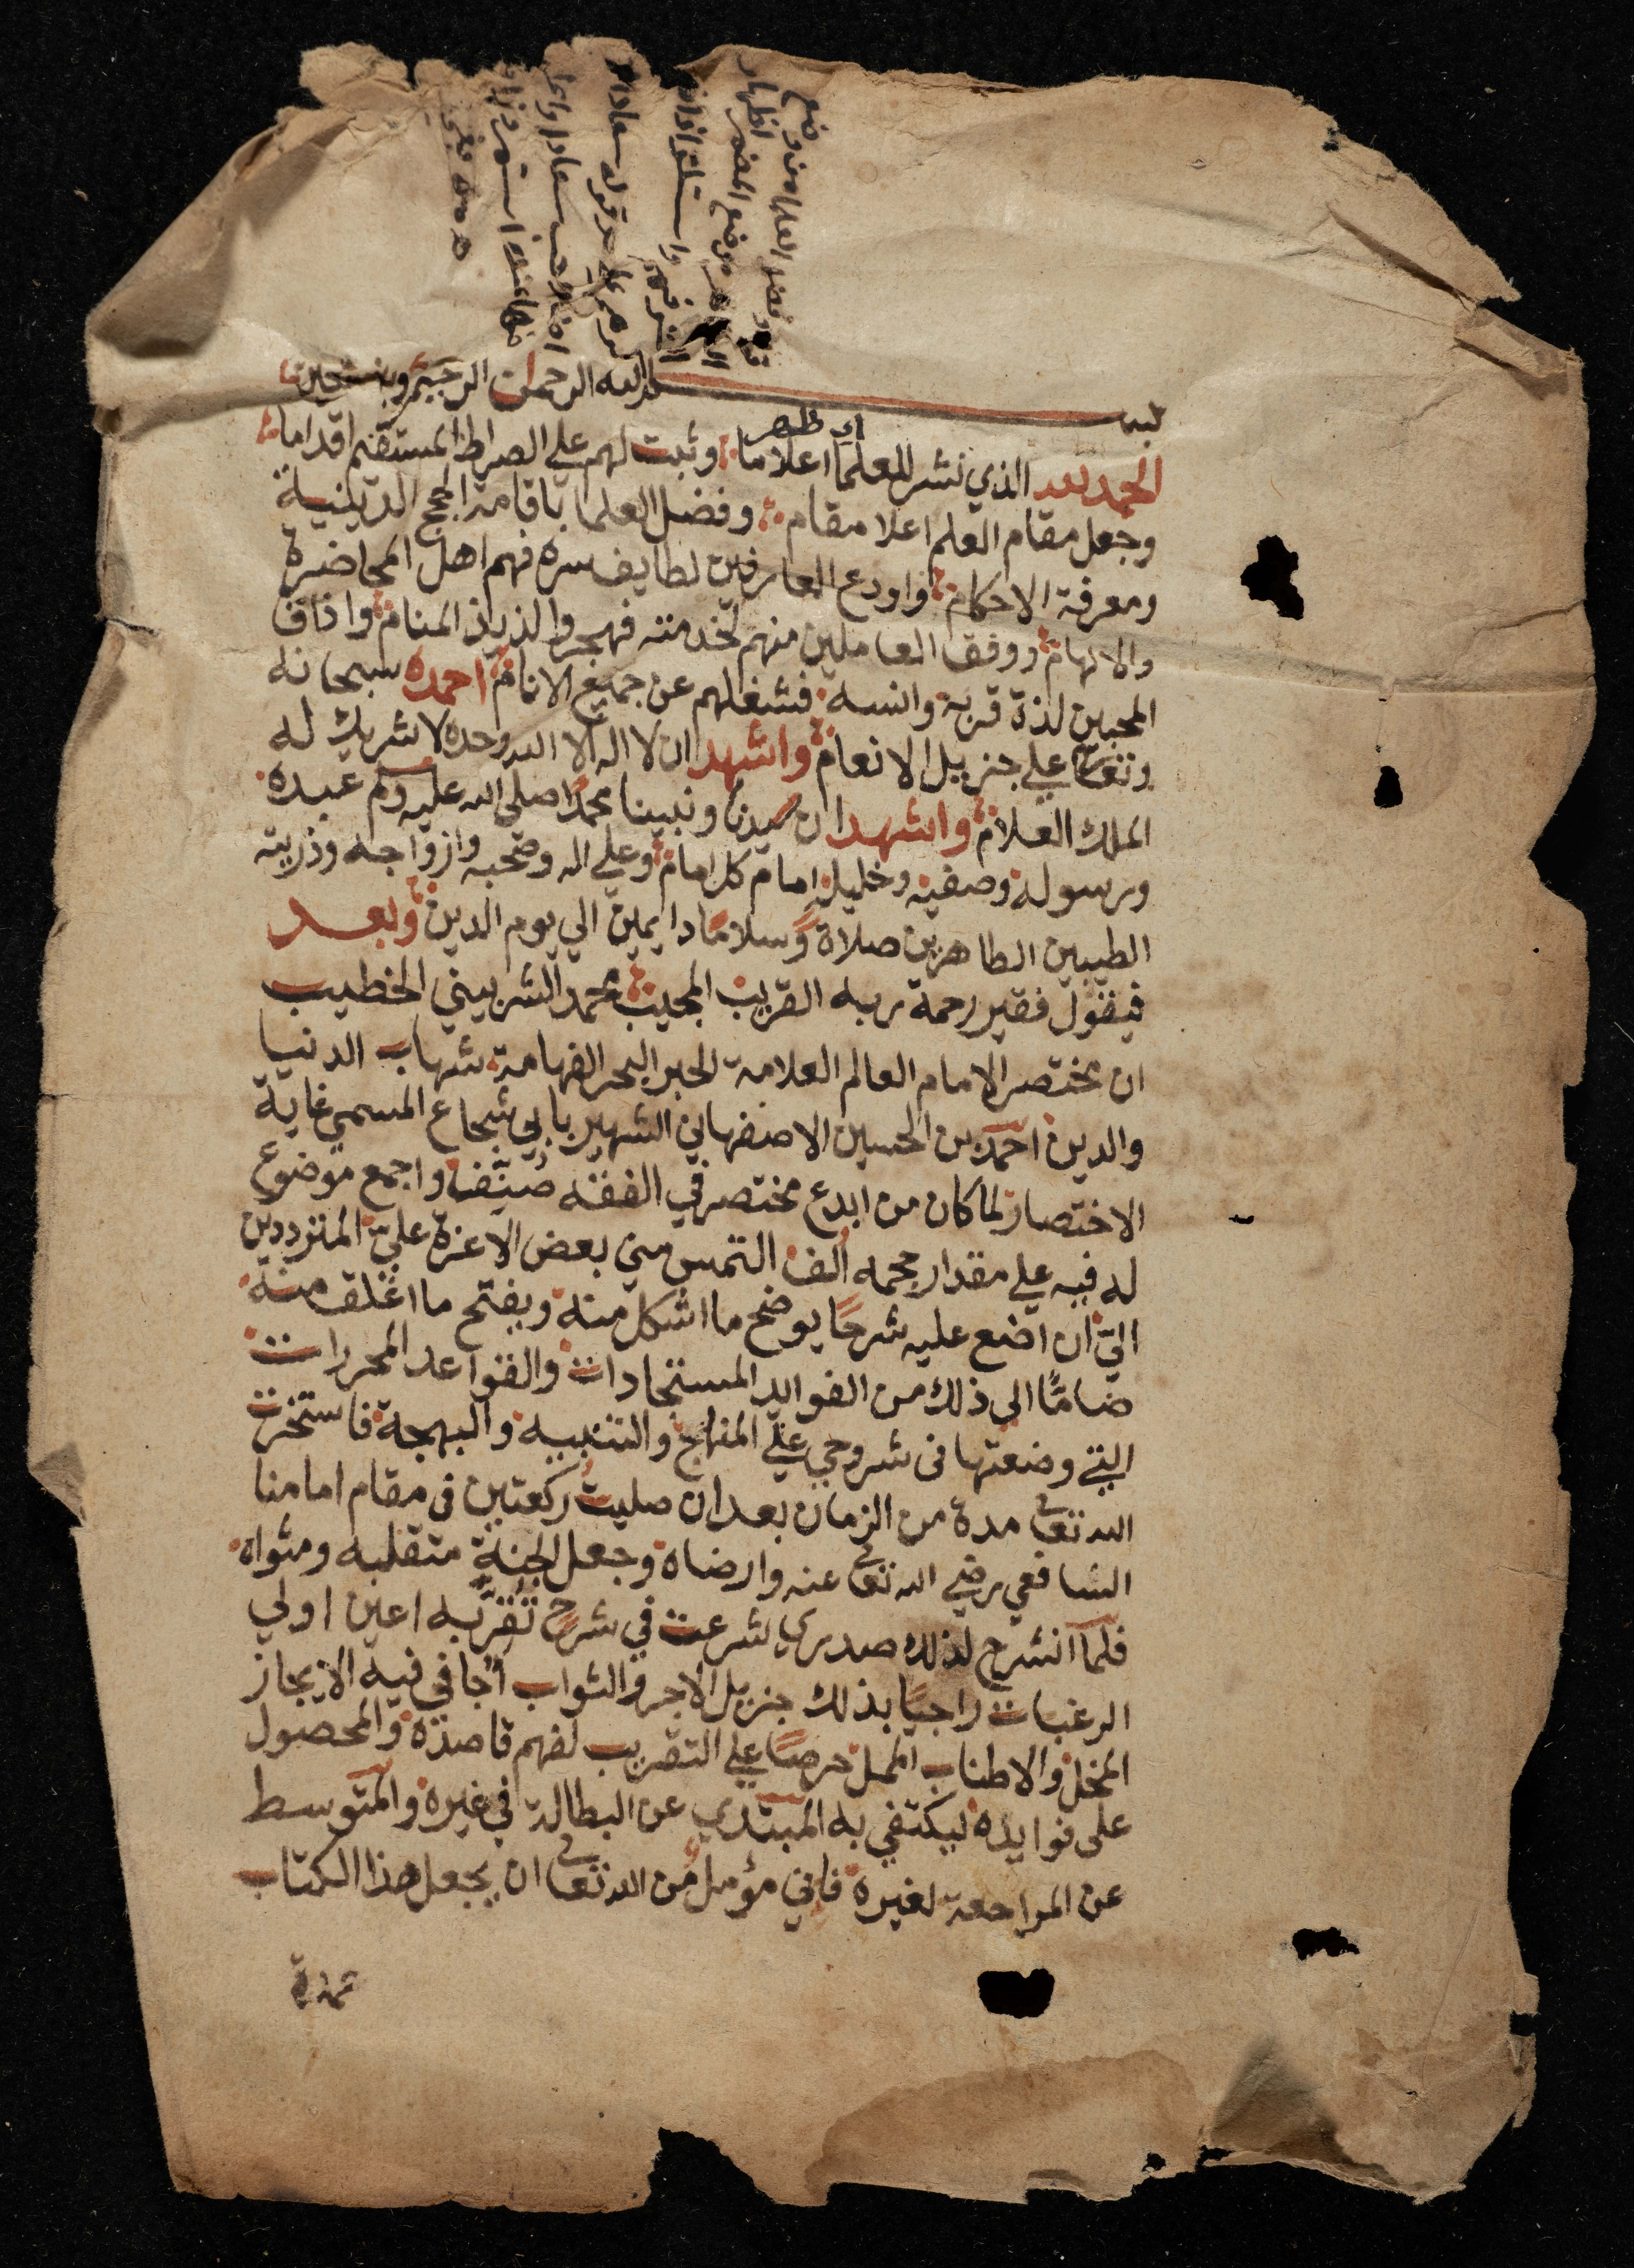 قوله وفضل العلما من وضع
موضع المضمر اظهار
بسم الله الرحمان الرحيم وبه نستعين
اي ظهر
الحمد لله الذي نشر للعلما اعلاما وثبت لهم علي الصراط المستقيم اقداما
وجعل مقام العلم اعلا مقام وفضل العلما باقامة الحجج الدينية
ومعرفة الاحكام واودع العارفين لطايف سره فهم اهل المحاضرة
والالهام ووفق العاملين منهم لخدمته فهجروا لذيذ المنام واذاق
المحبين لذة قربه وانسه فشغلهم عن جميع الانام احمده سبحانه
وتعالى علي جزيل الانعام واشهد ان لا اله الا الله وحده لا شريك له
الملك العلام واشهد ان سيدنا ونبينا محمدا صلى الله عليه وسلم عبده
ورسوله وصفيه وخليله امام كل امام وعلي اله وصحبه وازواجه وذريته
الطيبين الطاهرين صلاة وسلامًا دايمين الي يوم الدين وبعد
فيقول فقير رحمة ربه القريب المجيب محمد الشربيني الخطيب
ان مختصر الامام العالم العلامة الحبر البحر الفهامة شهاب الدنيا
والدين احمد بن الحسين الاصفهاني الشهير بابي شجاع المسمي غاية
الاختصار لما كان من ابدع مختصر في الفقه صُنِّف واجمع موضوع
له فيه علي مقدار حجمه الف التمس مني بعض الاعزة عليّ المترددين
اليّ ان اضع عليه شرحًا يوضح ما اشكل منه ويفتح ما اغلق منه
ضامًّا الى ذلك من الفوايد المستجادات والقواعد المحررات
التي وضعتها في شروحي علي المنهاج والتنبيه والبهجة فاستخرت
الله تعالى مدة من الزمان بعد ان صليت ركعتين في مقام امامنا
الشافعي رضي الله تعالى عنه وارضاه وجعل الجنة متقلبه ومثواه
فلما انشرح لذلك صدري شرعت في شرح تُقَرُّ به اعين اولي
الرغبات راجيًا بذلك جزيل الاجر والثواب اُجافي فيه الايجاز
المخل والاطناب الممل حرصًا علي التقريب لفهم قاصده والمحصول
على فوايده ليكتفي به المبتدي عن البطالة في غيره والمتوسط
عن المراجعة لغيره فاني مؤمل من الله تعالى ان يجعل هذا الكتاب
عمدة